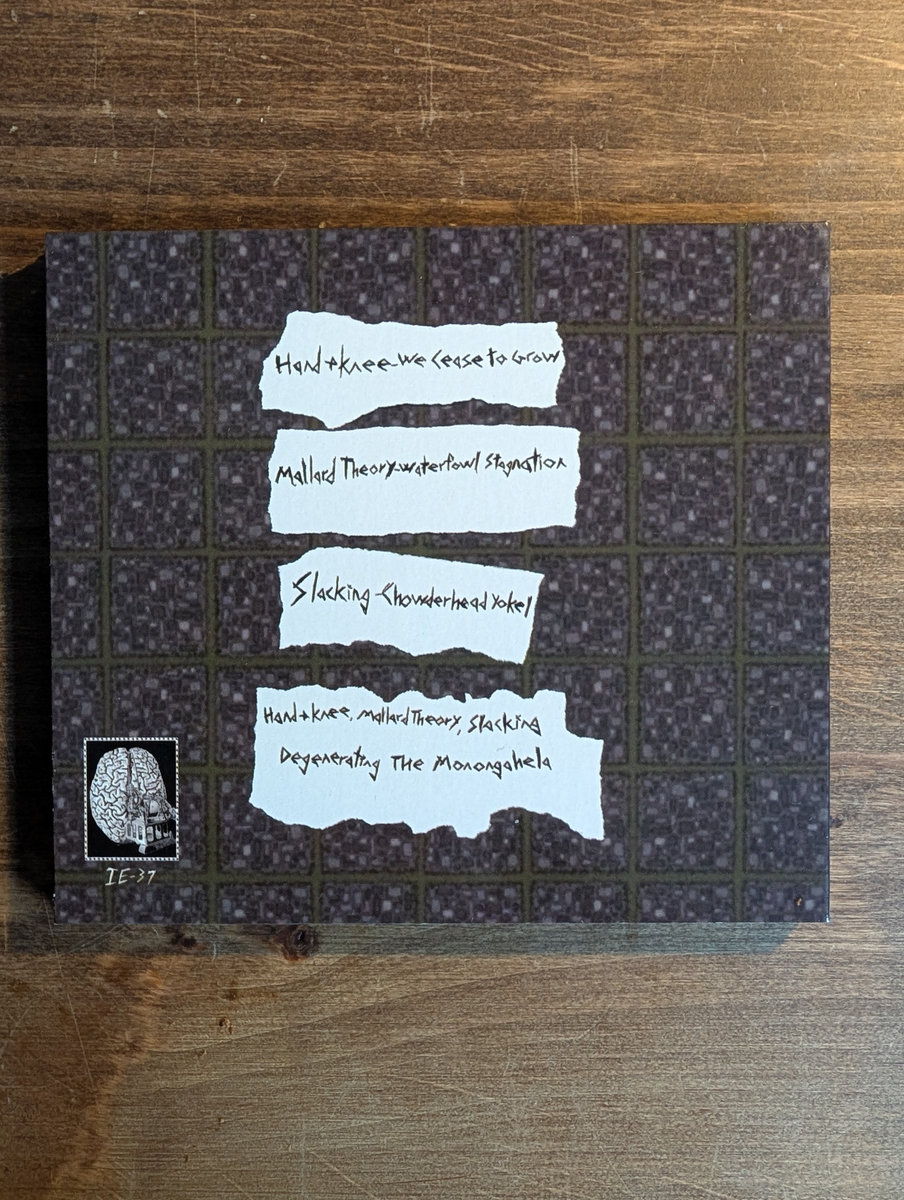 Hand + Knee - We Cease to Grow
Mallard Theory - Waterfowl Stagnation
Slacking - Chowderhead Yokel
Hand + Knee, Mallard Theory, Slacking
Degenerating The Monongahela
IE-37